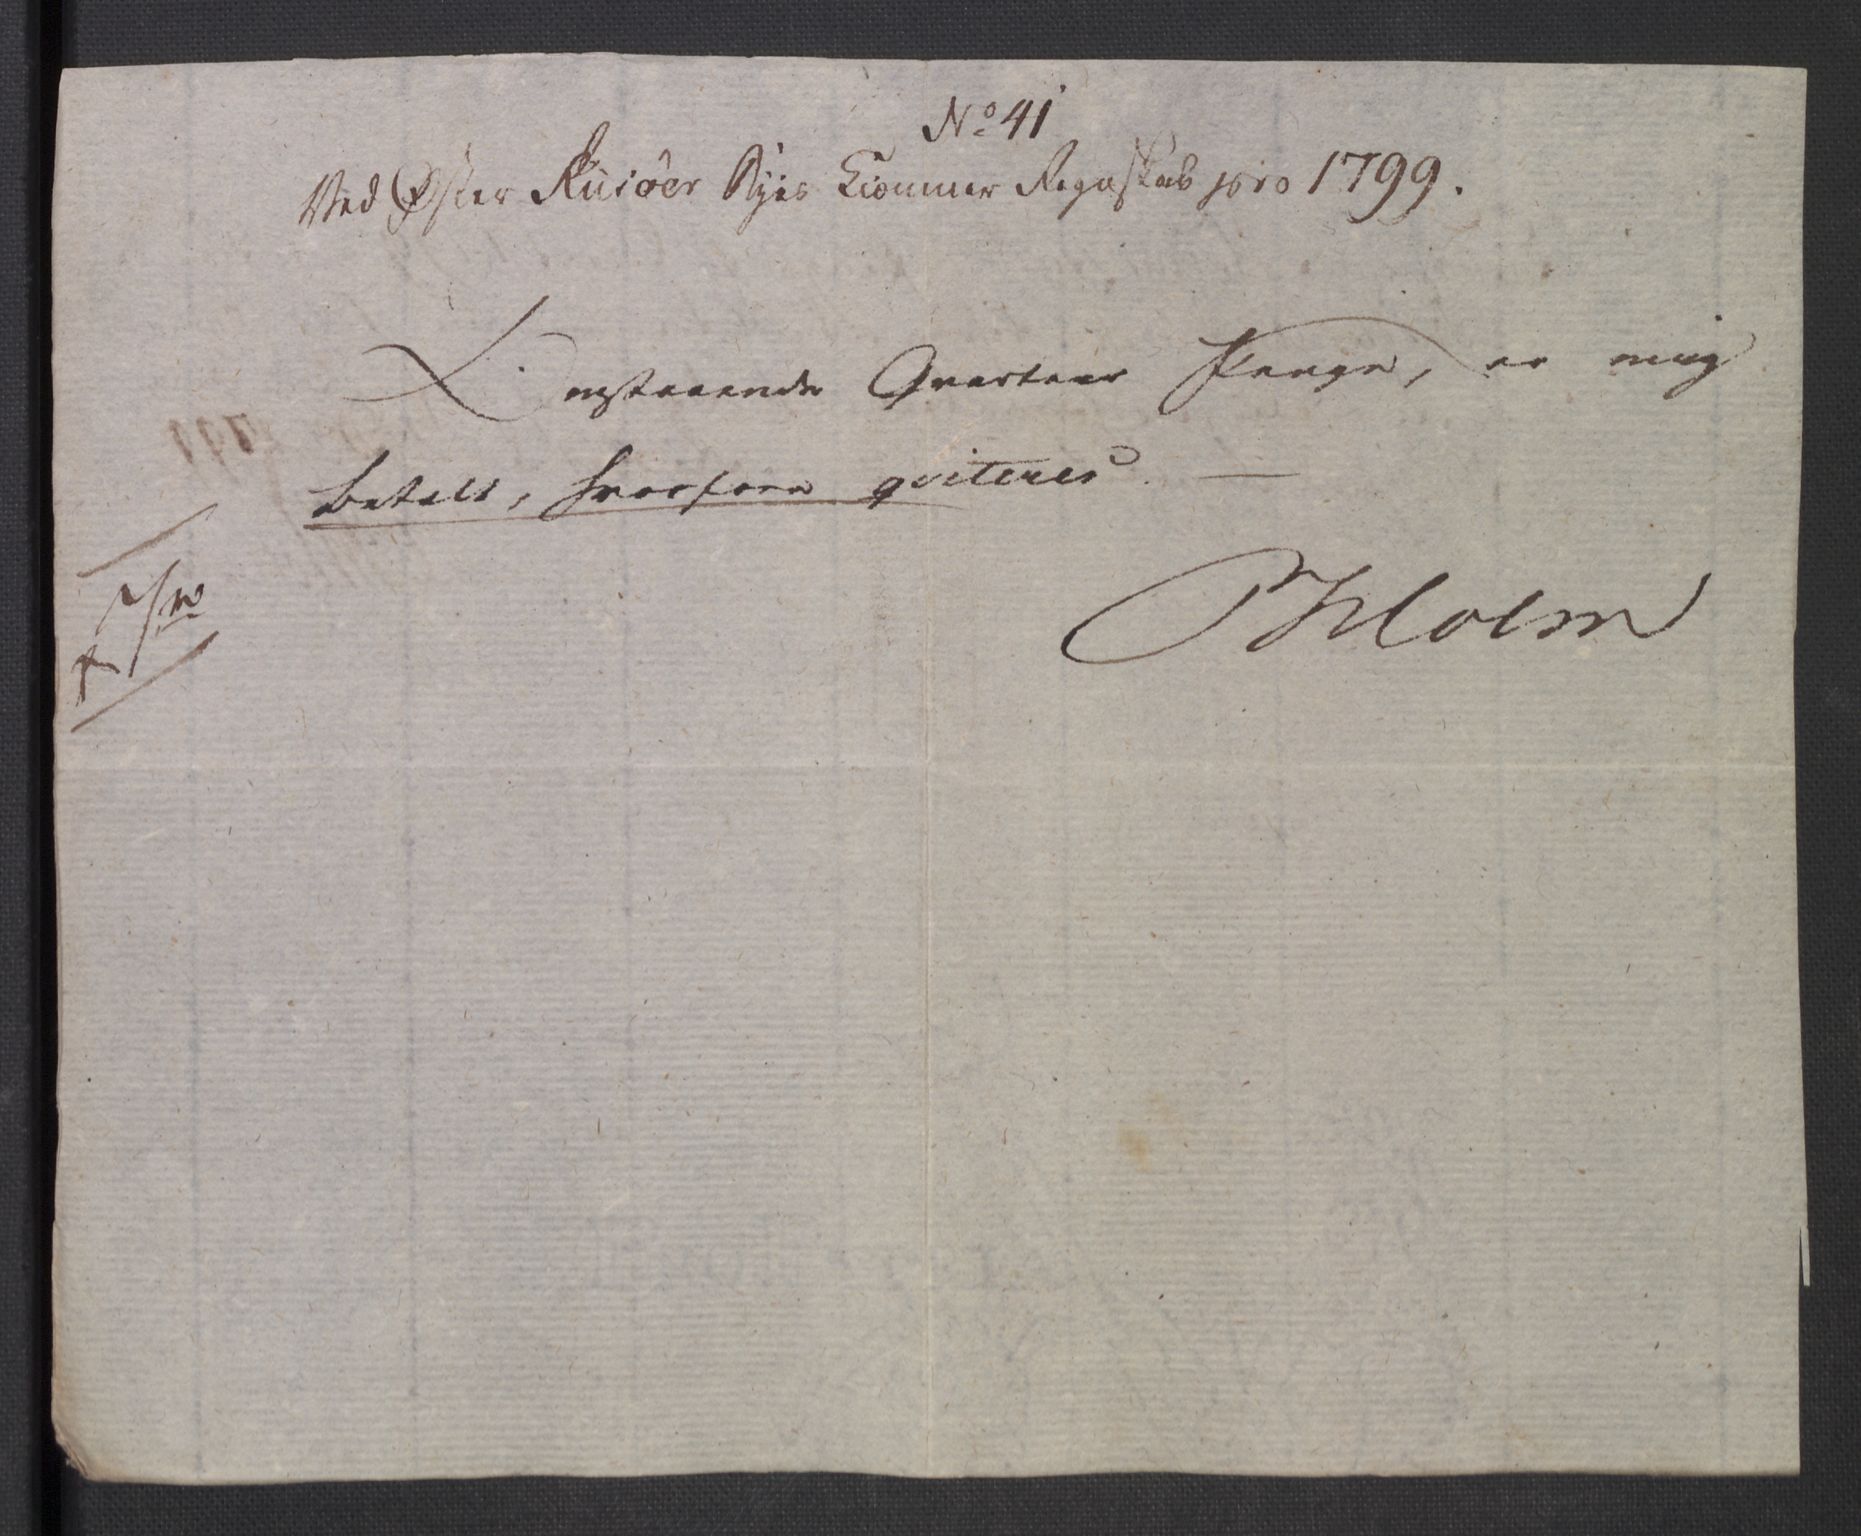 No 41
Ved Øster Riisöer Byes Kiæmner Regnskab pro 1799.
Omstaaende Qvarteer Penge, er mig
betalt, hvorfore qviteres
Holm